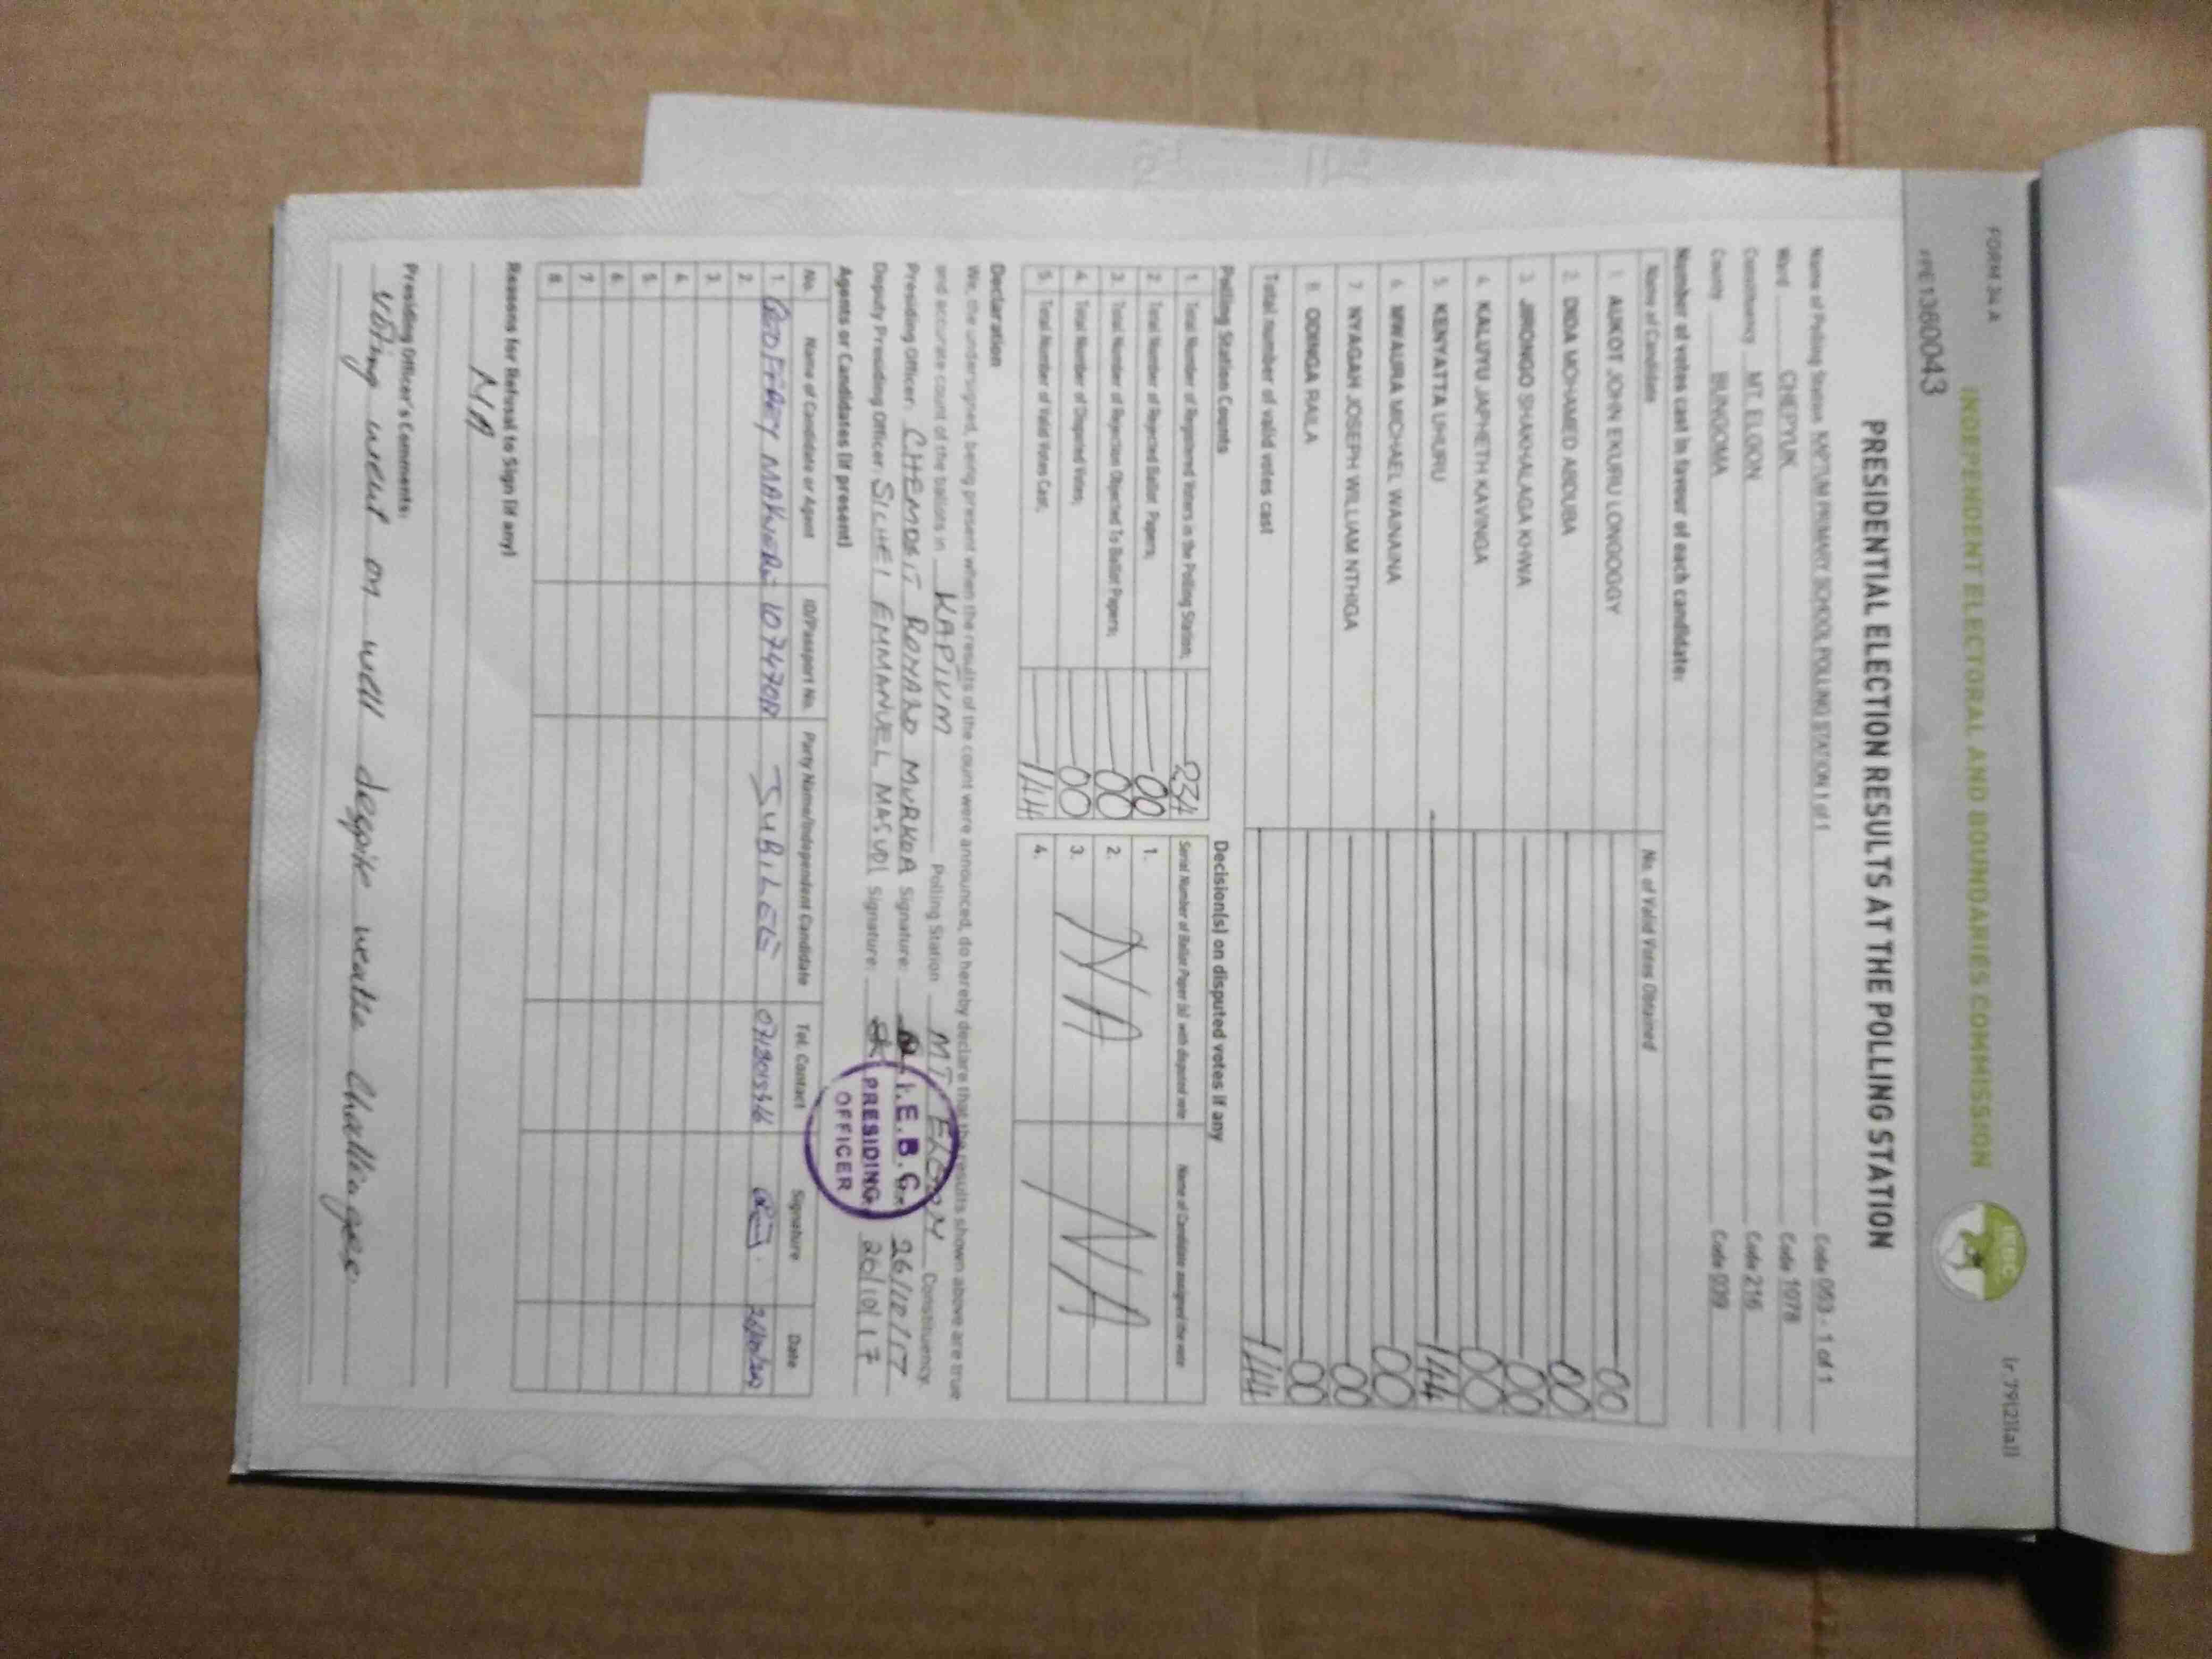 FORM 34 A
(r.79(2)(a))
INDEPENDENT ELECTORAL AND BOUNDARIES COMMISSION
IEBC
PRESIDENTIAL ELECTION RESULTS AT THE POLLING STATION
Name of Polling Station PRIMARY SCHOOL POLLING STATION 1 of 1 Code 053 - 1 of 1
Ward CHEPYUK Code 1078
Constituency MT. ELGON Code 216
County BUNGOMA Code 039
Number of votes cast in favour of each candidate:
Name of Candidate No. of Valid Votes Obtained
1. AUKOT JOHN EKURU LONGOGGY 00
2. DIDA MOHAMED ABDUBA 00
3. JIRONGO SHAKHALAGA KHWA 00
4. KALUYU JAPHETH KAVINGA 00
5. KENYATTA UHURU 144
6. MWAURA MICHAEL WAINAINA 00
7. NYAGAH JOSEPH WILLIAM NTHIGA 00
8. ODINGA RAILA 00
Total number of valid votes cast 144
Polling Station Counts
1. Total Number of Registered Voters in the Polling Station; 234
2. Total Number of Rejected Ballot Papers; 00
3. Total Number of Rejection Objected To Ballot Papers; 00
4. Total Number of Disputed Votes; 00
5. Total Number of Valid Votes Cast; 144
Decision(s) on disputed votes if any
Serial Number of Ballot Paper (s) with disputed vote Name of Candidate assigned the vote
1.
2. N/A N/A
3.
4.
Declaration
We, the undersigned, being present when the results of the count were announced, do hereby declare that the results shown above are true
and accurate count of the ballots in KAPTUM Polling Station MT ELGON Constituency.
Presiding Officer: Signature: 26/10/17
Deputy Presiding Officer: SICHEI EMMANUEL MASUDI Signature: 26/10/17
I.E.B.C.
PRESIDING
OFFICER
Agents or Candidates (if present)
No. Name of Candidate or Agent ID/Passport No. Party Name/Independent Candidate Tel. Contact Signature Date
1. JUBILEE
2.
3.
4.
5.
6.
7.
8.
Reasons for Refusal to Sign (if any)
N/A
Presiding Officer's Comments:
Voting went on well despite Challenges